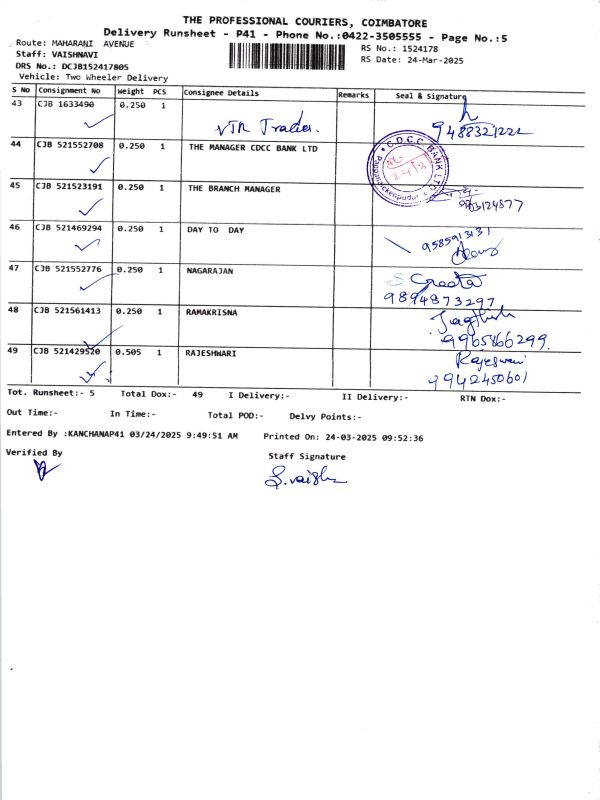 THE PROFESSIONAL COURIERS, COIMBATORE
Delivery Runsheet - P41 - Phone No.:0422-3505555 - Page No.:5
Route: MAHARANI AVENUE
RS No.: 1524178
Staff: VAISHNAVI
RS Date: 24-Mar-2025
DRS No.: DCJB152417805
Vehicle: Two Wheeler Delivery
S No Consignment No Weight PCS Consignee Details Remarks Seal & Signature
43 CJB 1633490 0.250 1 VTR Trades. 9488321222
44 CJB 521552708 0.250 1 THE MANAGER CDCC BANK LTD C.D.C.C. BANK LTD
45 CJB 521523191 0.250 1 THE BRANCH MANAGER
46 CJB 521469294 0.250 1 DAY TO DAY 9585913131
47 CJB 521552776 0.250 1 NAGARAJAN S Greeta
9894873297
48 CJB 521561413 0.250 1 RAMAKRISNA
9965866299.
49 CJB 521429520 0.505 1 RAJESHWARI Rajeswari
9942450601
Tot. Runsheet:- 5 Total Dox:- 49 I Delivery:- II Delivery:- RTN Dox:-
Out Time:- In Time:- Total POD:- Delvy Points:-
Entered By :KANCHANAP41 03/24/2025 9:49:51 AM Printed On: 24-03-2025 09:52:36
Verified By Staff Signature